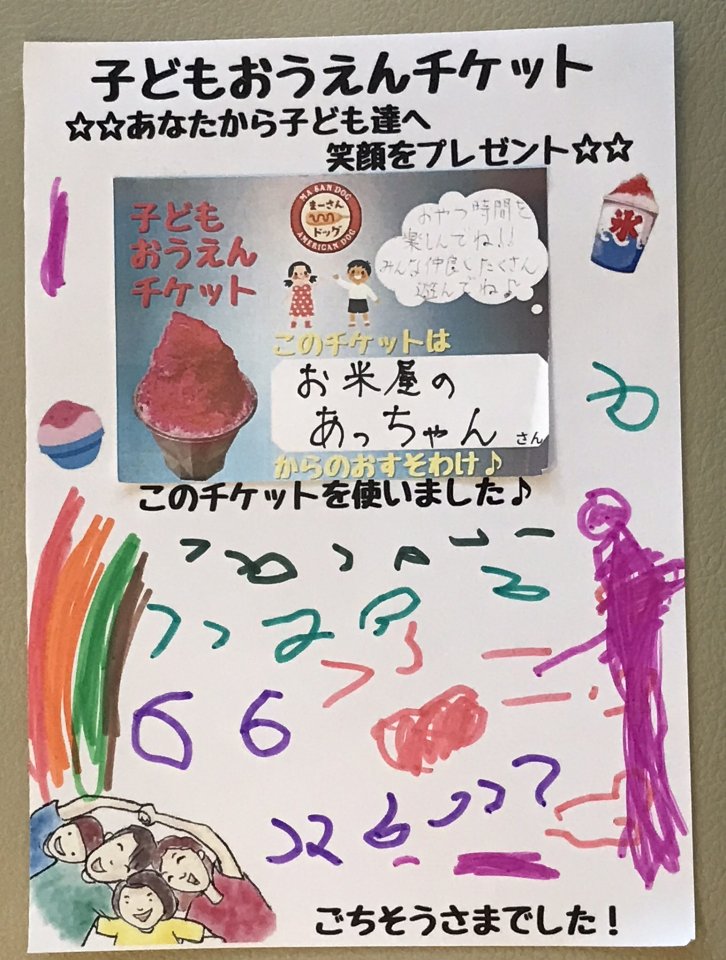 子どもおうえんチケット
☆☆あなたから子ども達へ
笑顔をプレゼント☆☆
子ども
おうえん
チケット
MA SAN DOG
まーさん
ドッグ
AMERICAN DOG
おやつ時間を
楽しんでね!!
みんな仲良くたくさん
遊んでね♪
氷
このチケットは
お米屋の
あっちゃん さん
からのおすそわけ♪
このチケットを使いました♪
ごちそうさまでした!